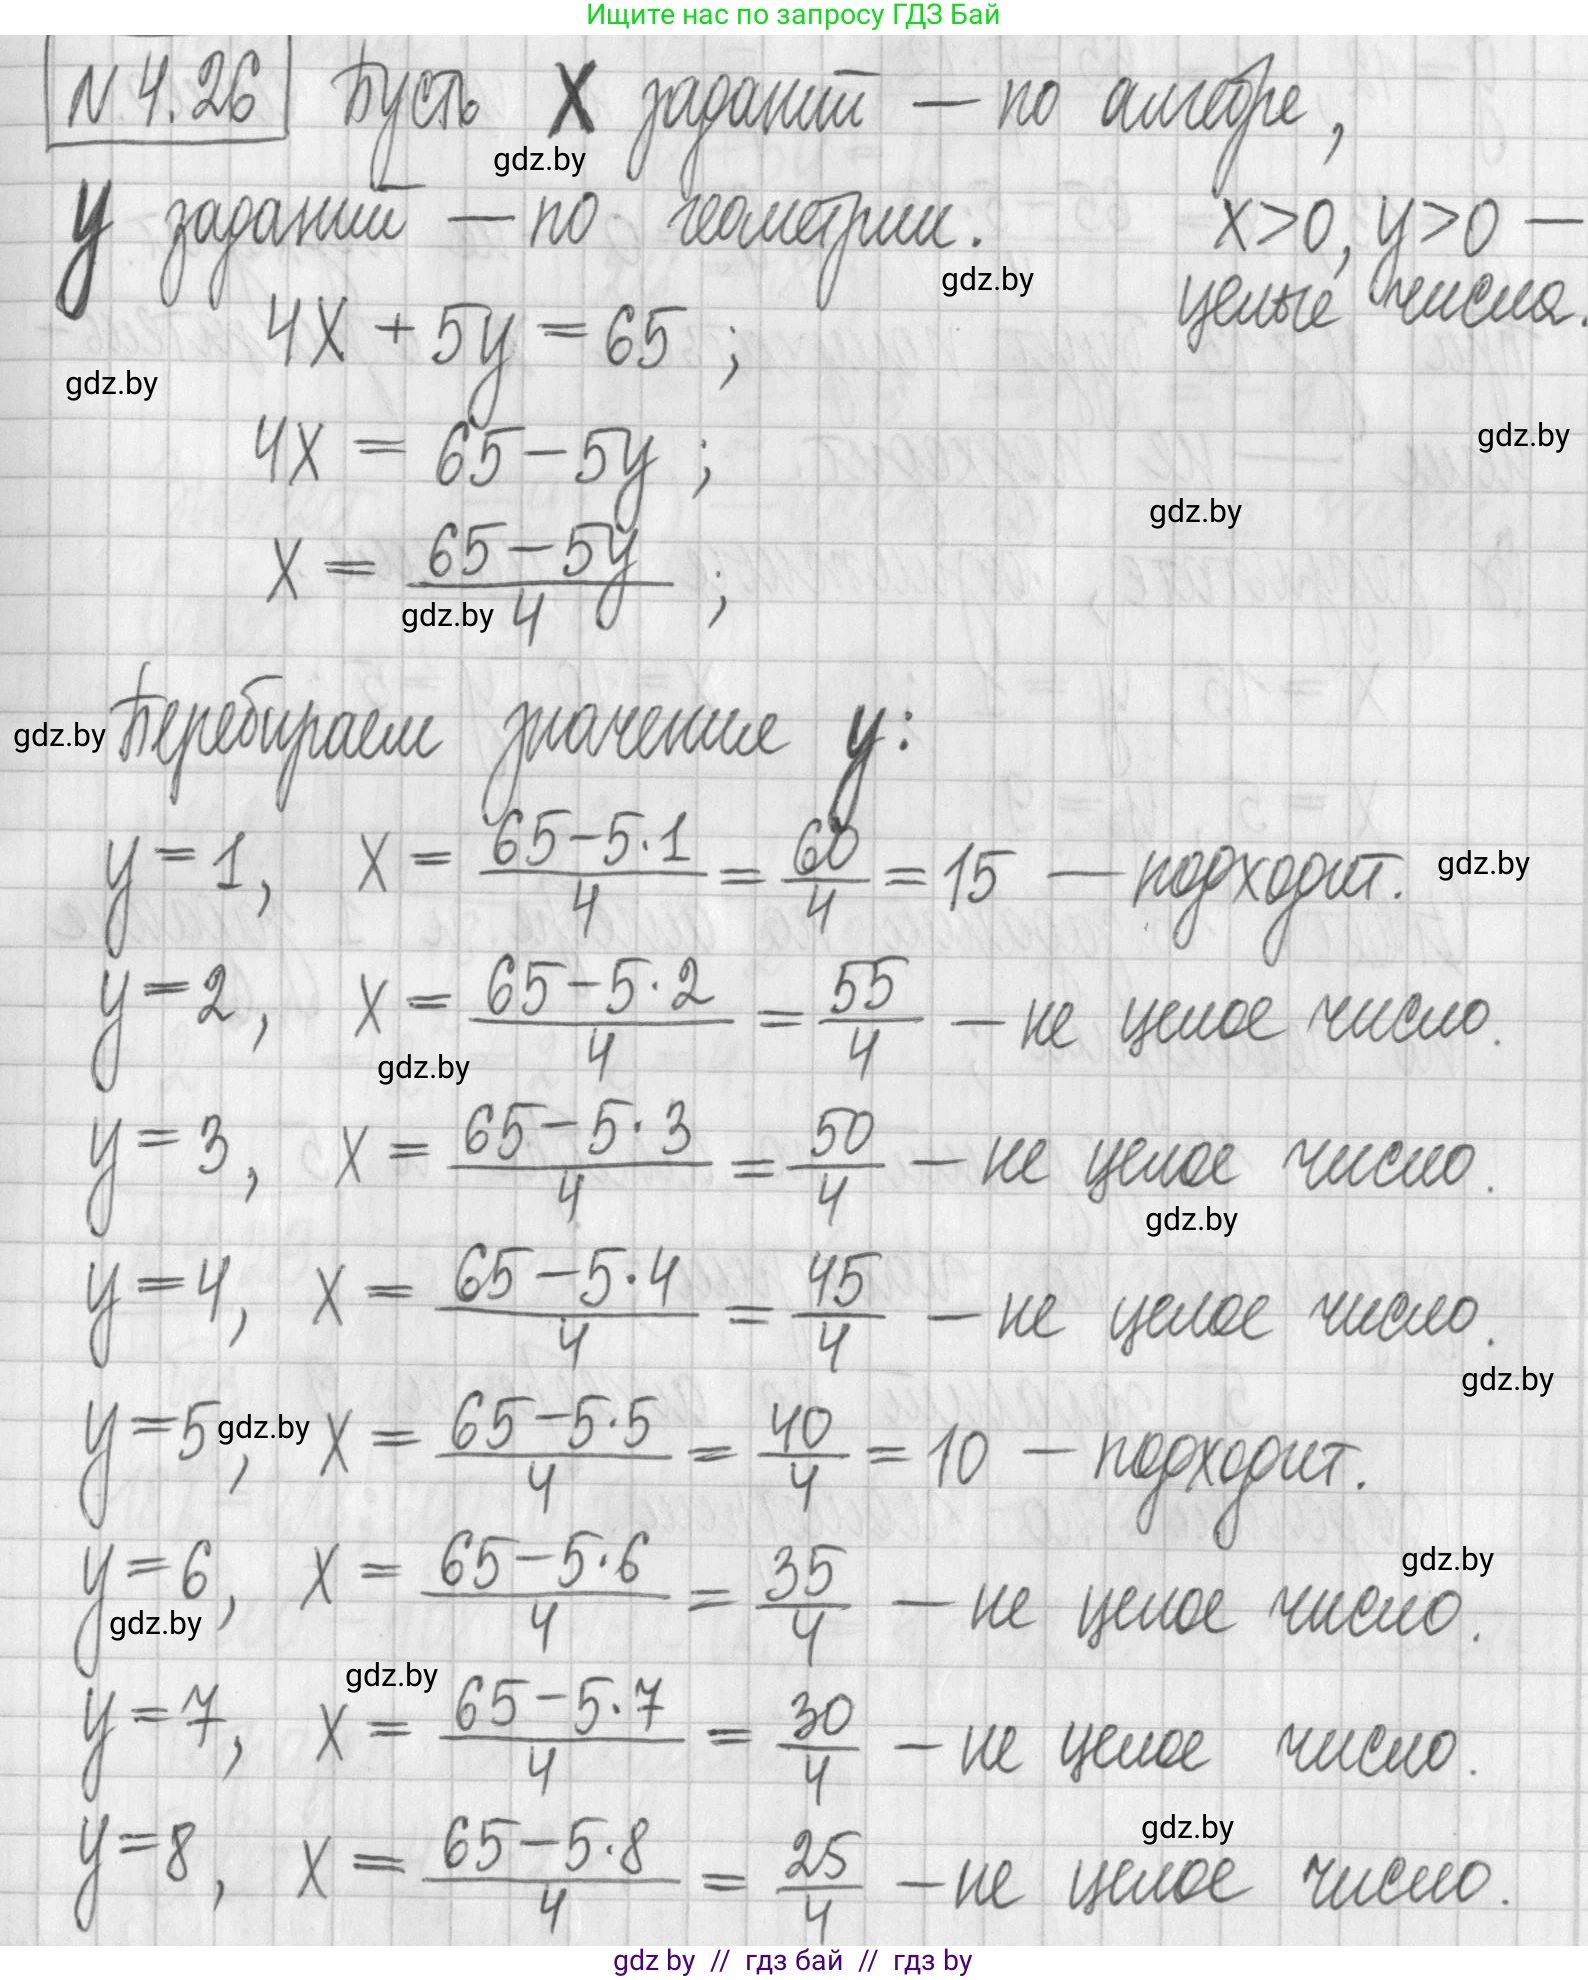 Ищите нас по запросу ГДЗ Бай
№ 4.26 Пусть X заданий — по алгебре,
gdz.by
y заданий — по геометрии. x>0, y>0 —
gdz.by
целые числа.
4x + 5y = 65 ;
gdz.by
4x = 65 – 5y ;
gdz.by
gdz.by
x = (65 – 5y)/4 ;
gdz.by
Перебираем значения y:
gdz.by
y = 1, x = (65–5·1)/4 = 60/4 = 15 — подходит.
gdz.by
y = 2, x = (65–5·2)/4 = 55/4 – не целое число.
gdz.by
y = 3, x = (65–5·3)/4 = 50/4 – не целое число.
gdz.by
y = 4, x = (65–5·4)/4 = 45/4 – не целое число.
gdz.by
y = 5, x = (65–5·5)/4 = 40/4 = 10 – подходит.
gdz.by
y = 6, x = (65–5·6)/4 = 35/4 – не целое число.
gdz.by
gdz.by
gdz.by
y = 7, x = (65–5·7)/4 = 30/4 – не целое число.
gdz.by
y = 8, x = (65–5·8)/4 = 25/4 – не целое число.
gdz by // гдз бай // гдз by